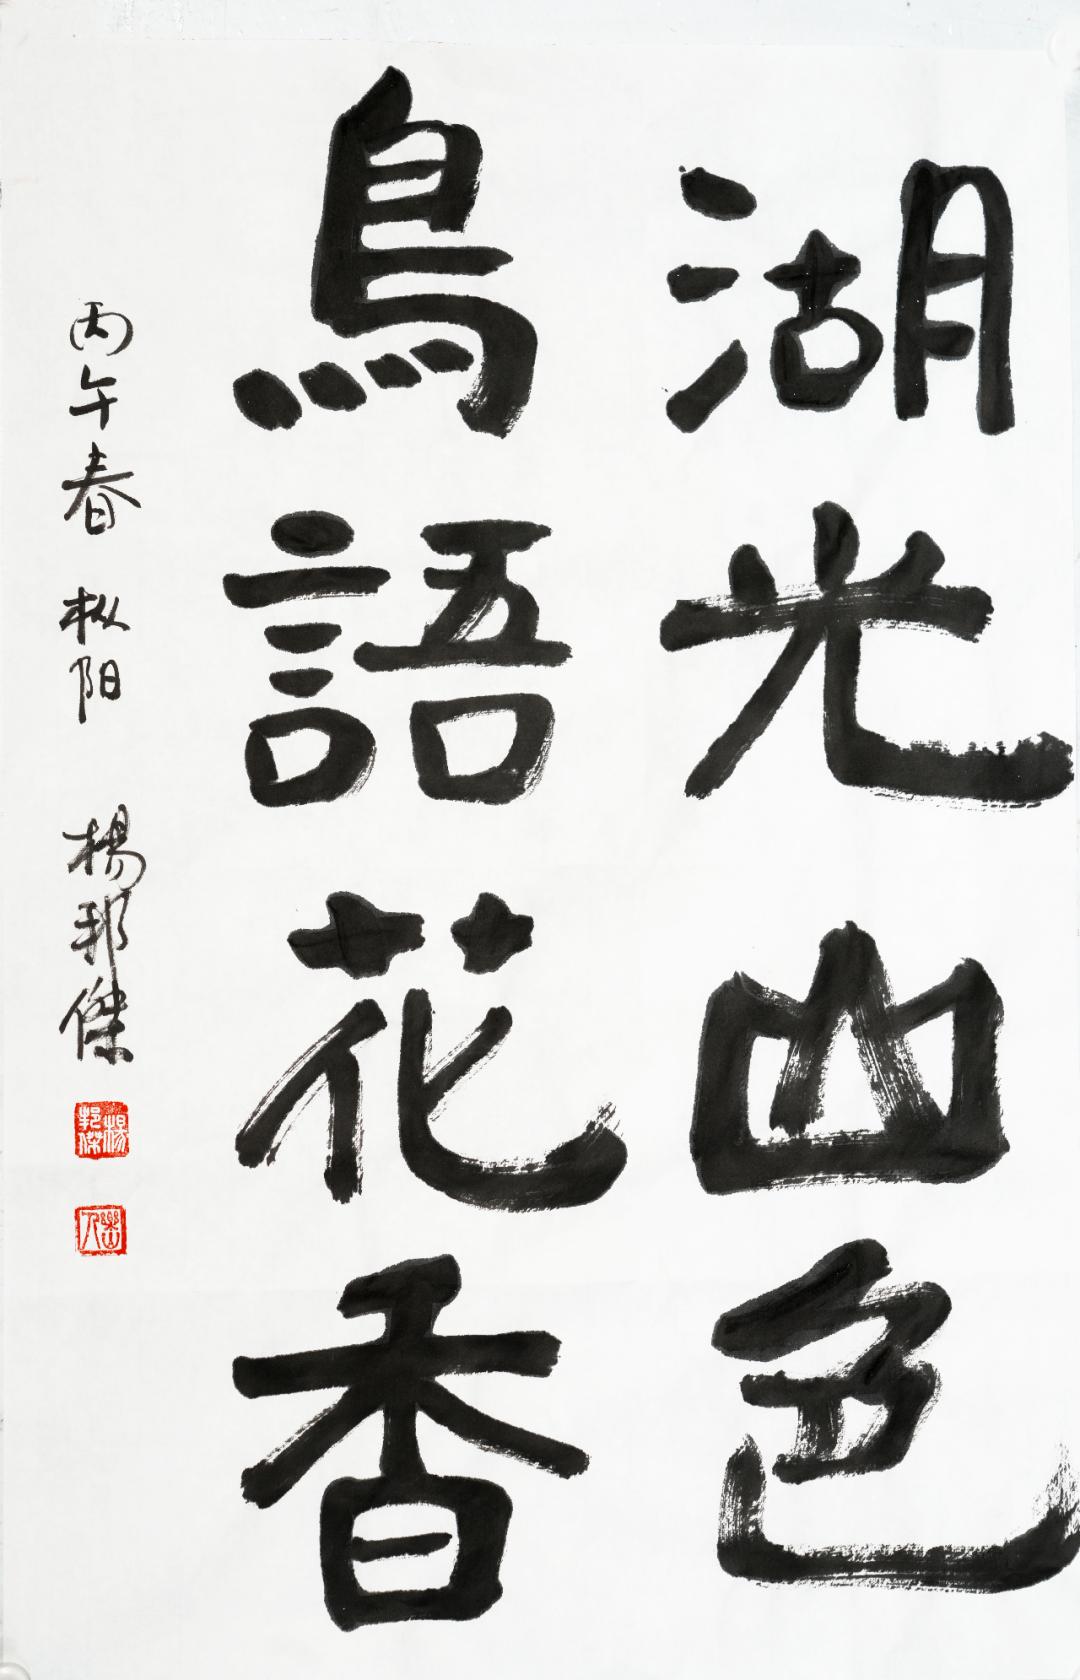 湖光山色
鳥語花香
丙午春 枞阳 楊邦傑
楊邦傑
樂山人